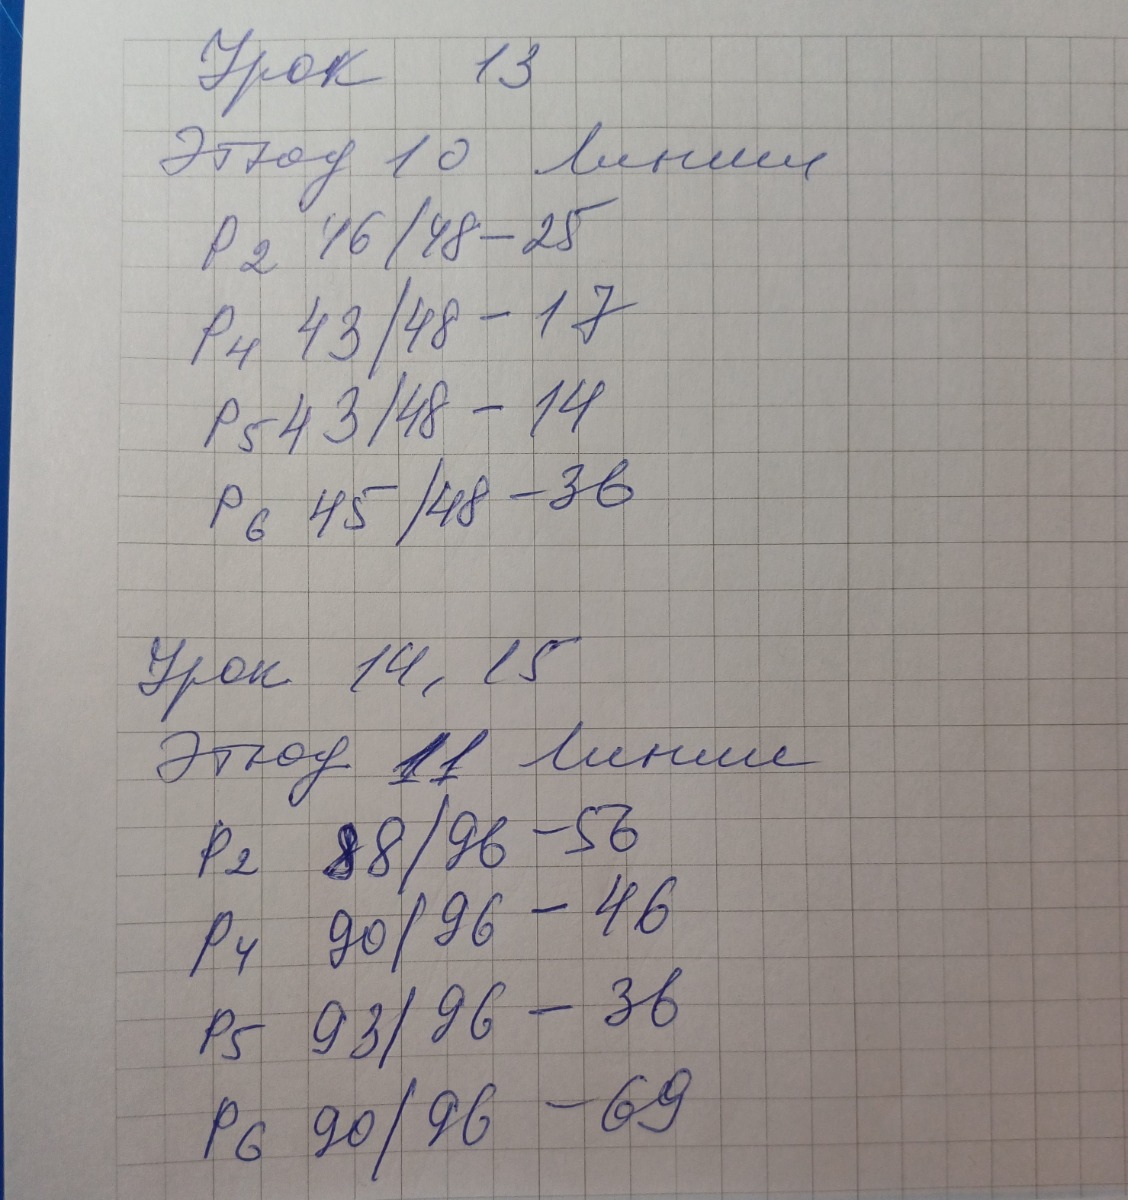 Урок 13
Этюд 10 Линии
P2 46/48 – 25
P4 43/48 – 17
P5 43/48 – 14
P6 45/48 – 36
Урок 14, 15
Этюд 11 Линии
P2 88/96 – 56
P4 90/96 – 46
P5 93/96 – 36
P6 90/96 – 69